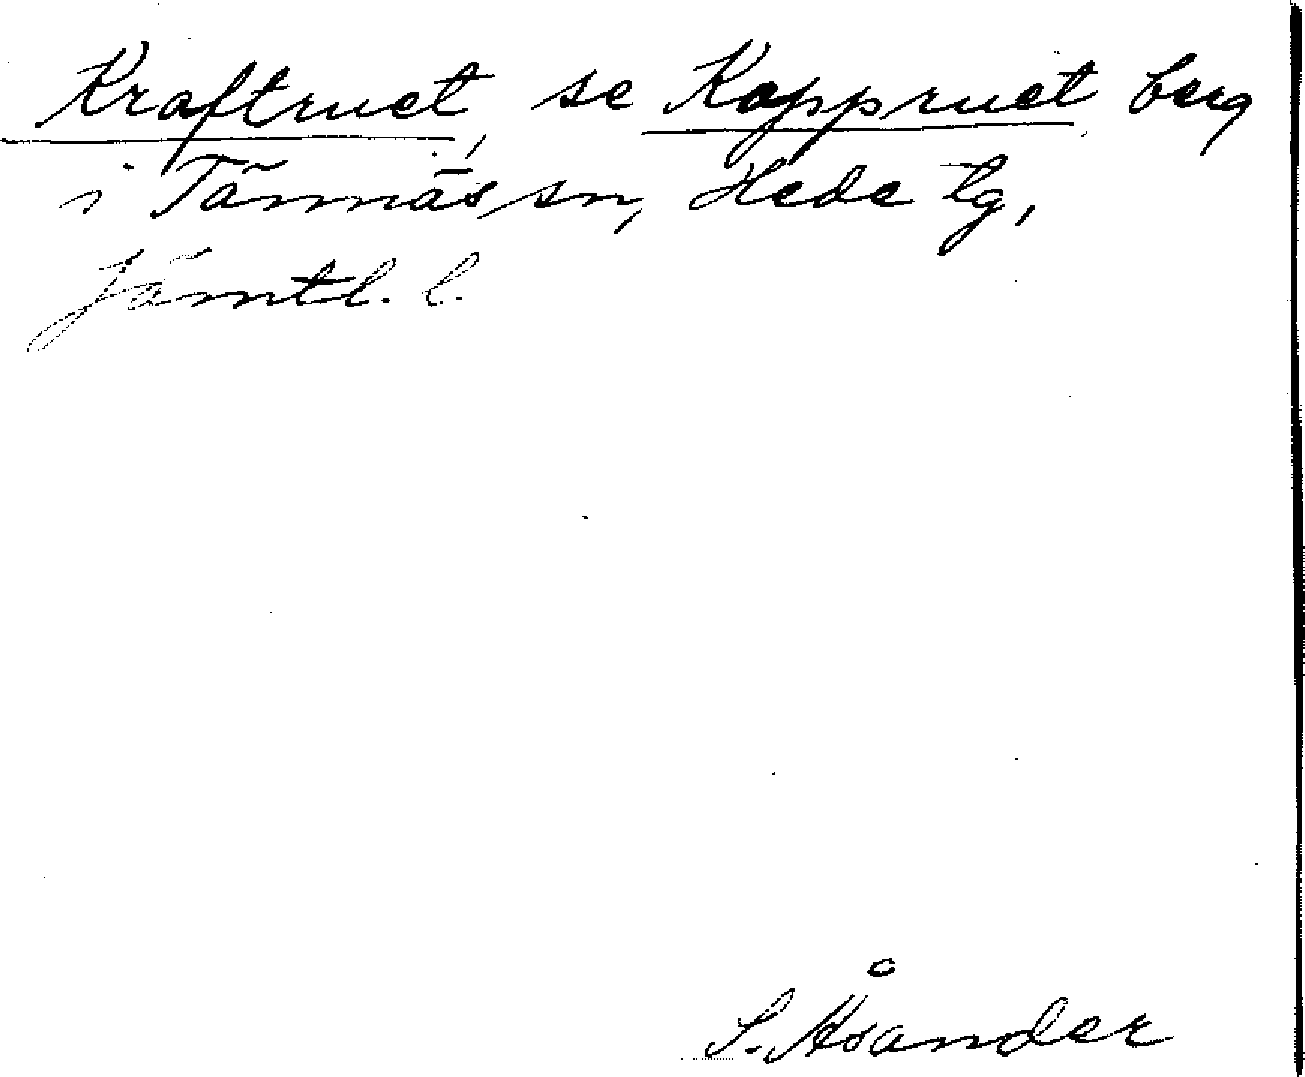 Kraftruet, se Kappruet berg
i Tännäs sn, Hede tg,
Jämtl. l.
S. Åsander